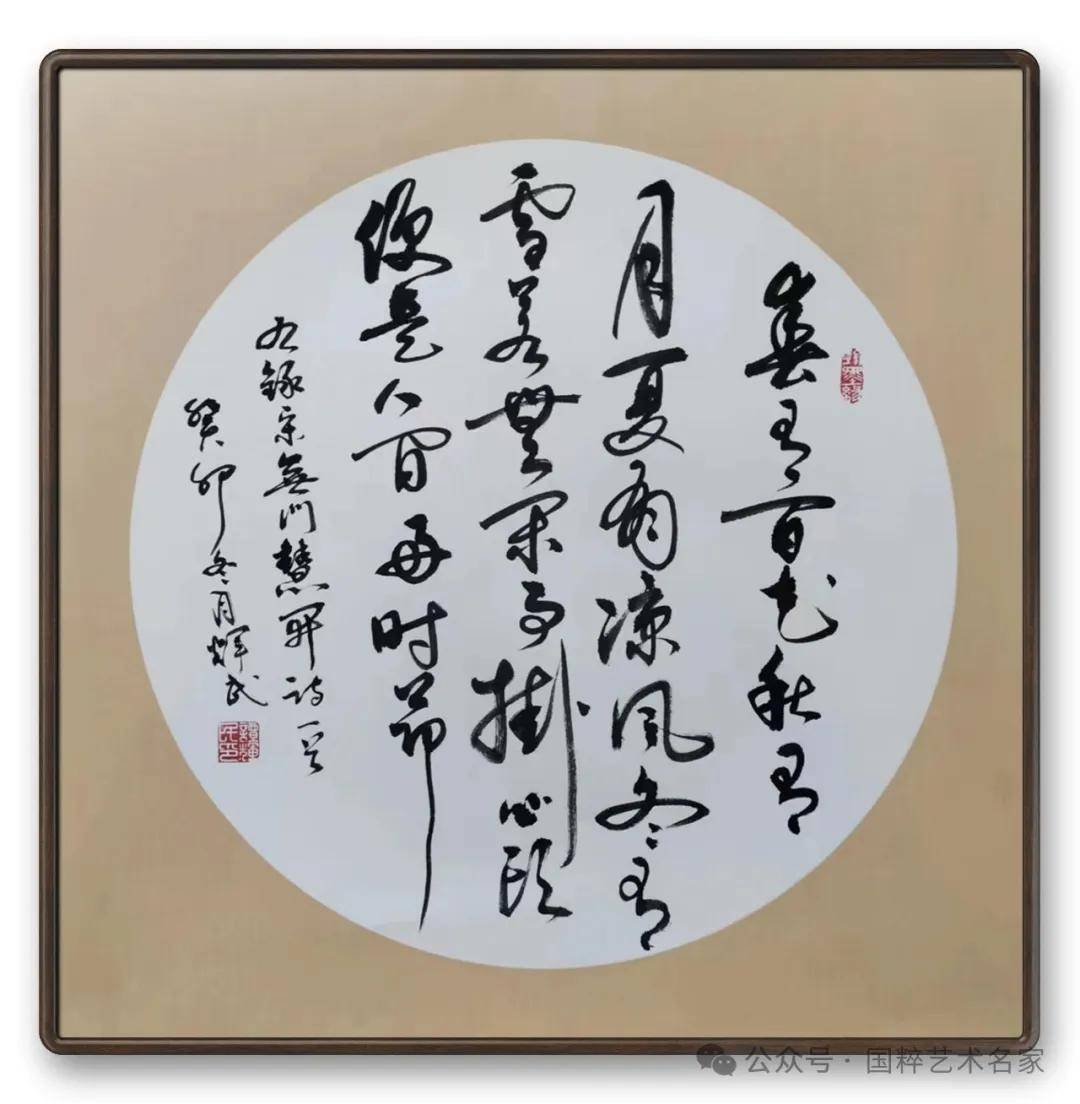 春有百花秋有
月夏有凉风冬有
雪若無闲事掛心頭
便是人间好时节
右録宋無門慧開詩一首
癸卯冬月輝民
公众号 · 国粹艺术名家